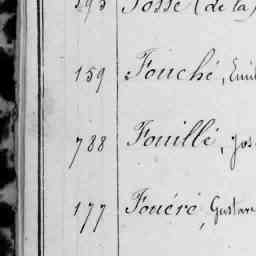 293 Fosse (de la)
159 Fouché, Emil
788 Fouillé, Jos
177 Fouéré, Gustav